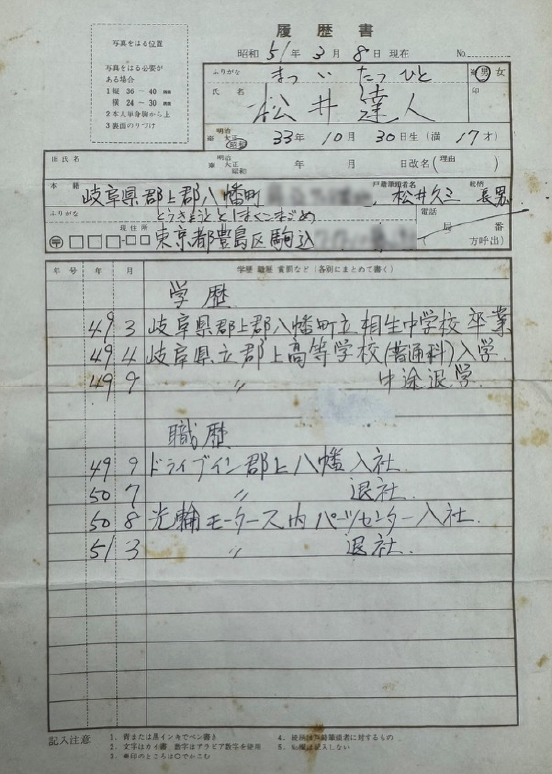 履歴書
昭和 51年 3月 8日 現在 No.
写真をはる位置
写真をはる必要が
ある場合
1 縦 36～40 ㎜
横 24～30 ㎜
2 本人単身胸から上
3 裏面のりづけ
ふりがな まつい たつひと 男 女
氏名 松井 達人 印
明治 大正 昭和 33年 10月 30日生 (満 17才)
旧氏名 明治 大正 昭和 年 月 日改名 (理由 )
本籍 岐阜県郡上郡八幡町 戸籍筆頭者名 松井久三 続柄 長男
ふりがな とうきょうととしまくこまごめ
現住所 〒 東京都豊島区駒込 電話 局 番 ( 方呼出)
年号 年 月 学歴 職歴 賞罰など (各別にまとめて書く)
学歴
49 3 岐阜県郡上郡八幡町立相生中学校卒業
49 4 岐阜県立郡上高等学校(普通科)入学
49 9 〃 中途退学.
職歴
49 9 ドライブイン郡上八幡入社.
50 7 〃 退社.
50 8 光輪モータース内パーツセンター入社.
51 3 〃 退社.
記入注意 1. 青または黒インキでペン書き 4. 続柄は戸籍筆頭者に対するもの
2. 文字はカイ書 数字はアラビア数字を使用 5. 
3. ※印のところは○でかこむ